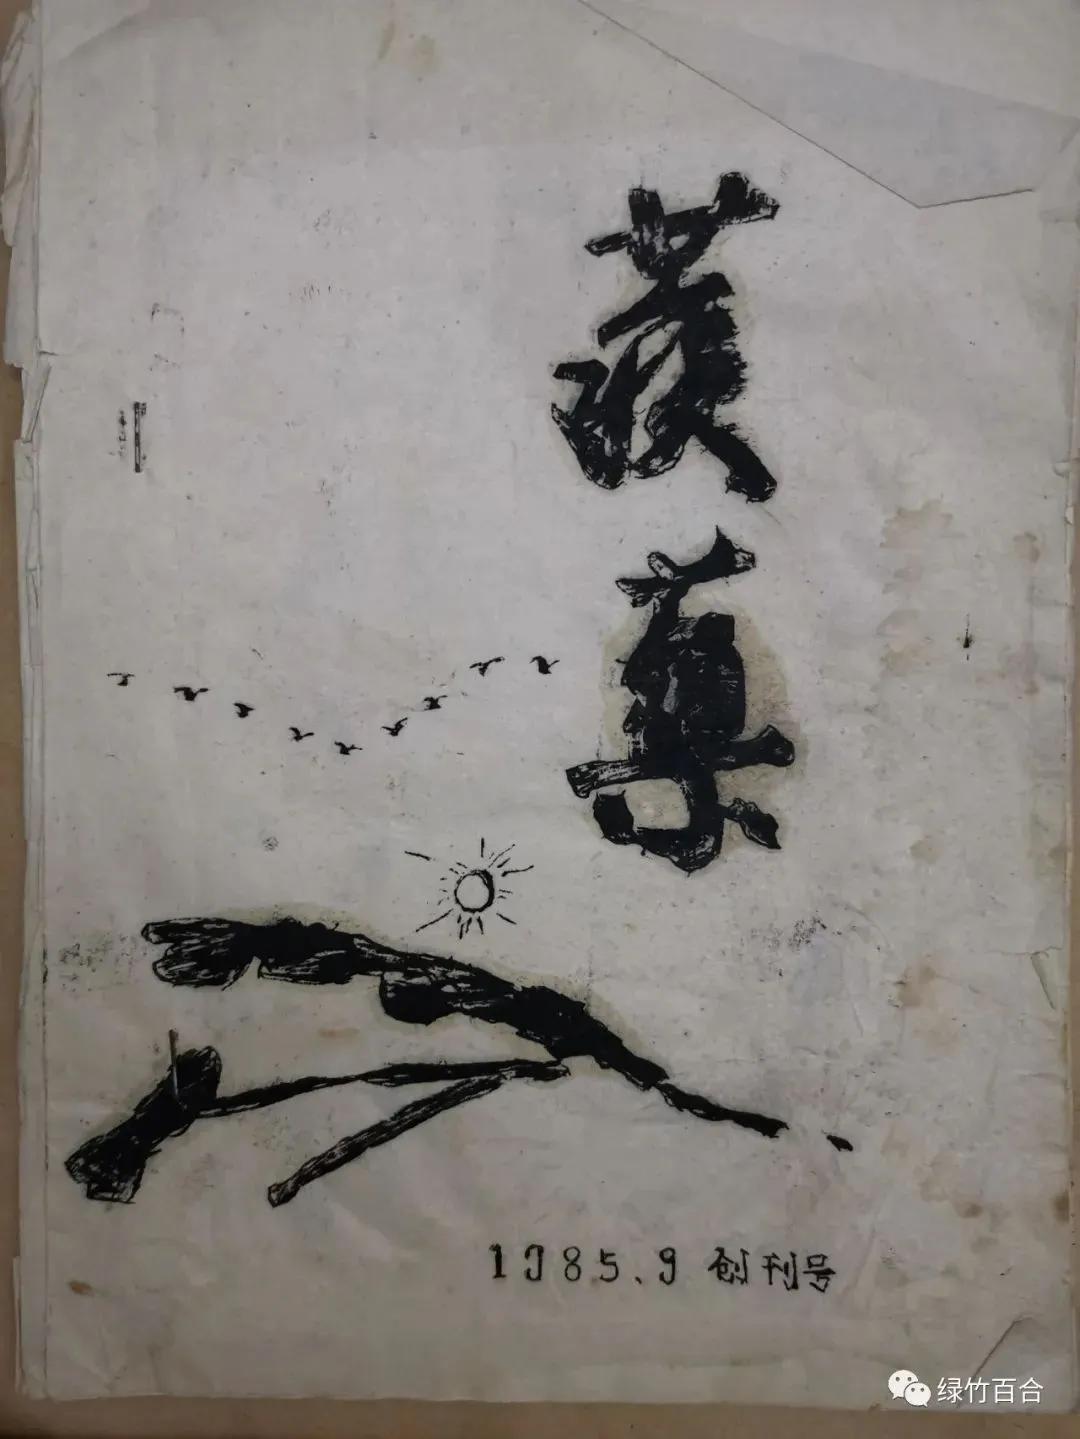 蕨
1985.9 创刊号
绿竹百合